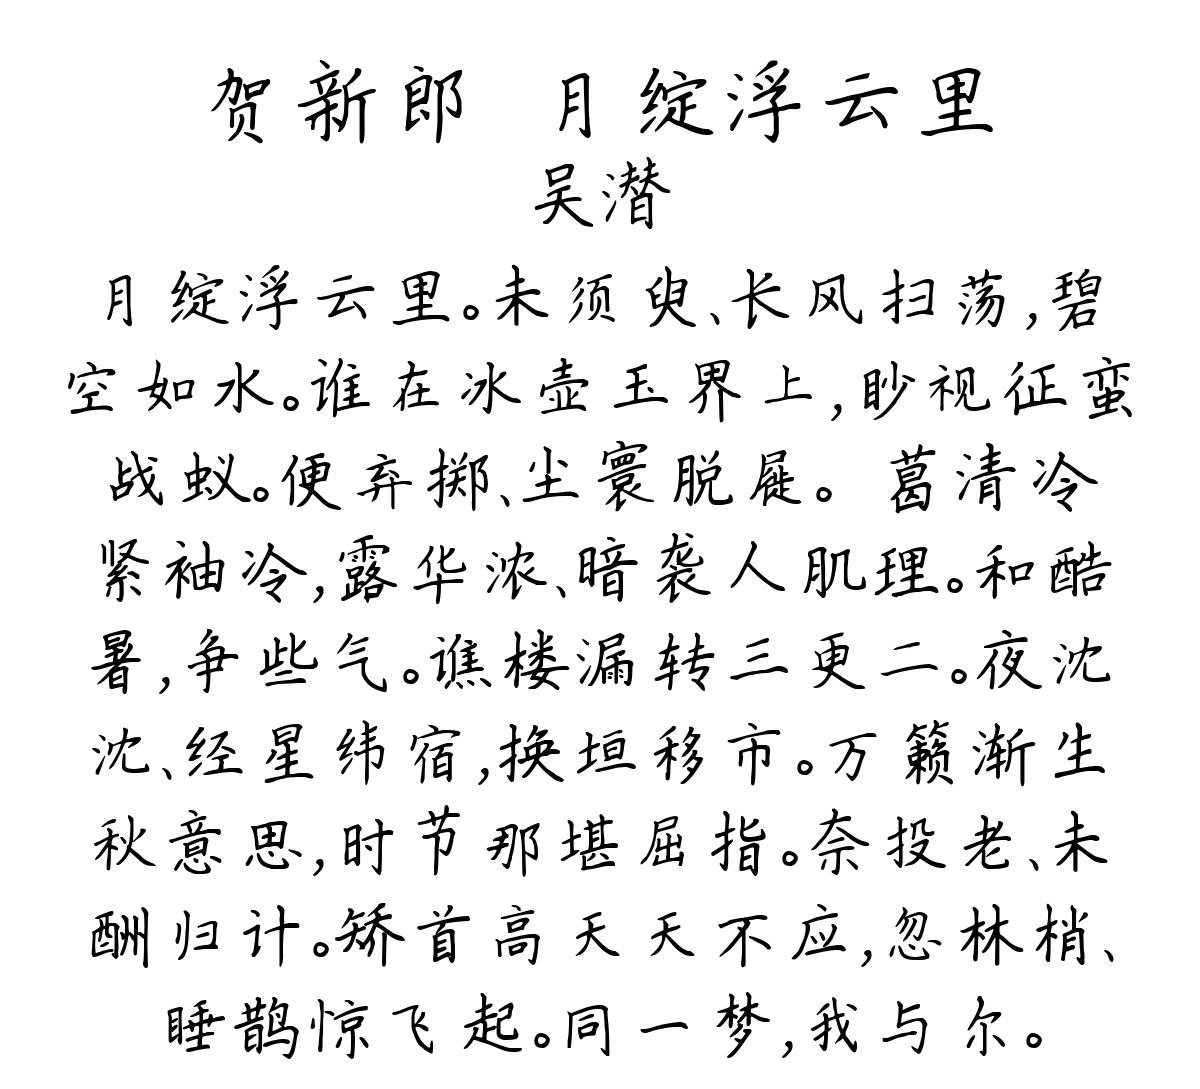 贺新郎 月绽浮云里
吴潜
月绽浮云里。未须臾、长风扫荡,碧
空如水。谁在冰壶玉界上,眇视征蛮
战蚁。便弃掷、尘寰脱屣。 葛清冷
紧袖冷,露华浓、暗袭人肌理。和酷
暑,争些气。谯楼漏转三更二。夜沈
沈、经星纬宿,换垣移市。万籁渐生
秋意思,时节那堪屈指。奈投老、未
酬归计。矫首高天天不应,忽林梢、
睡鹊惊飞起。同一梦,我与尔。